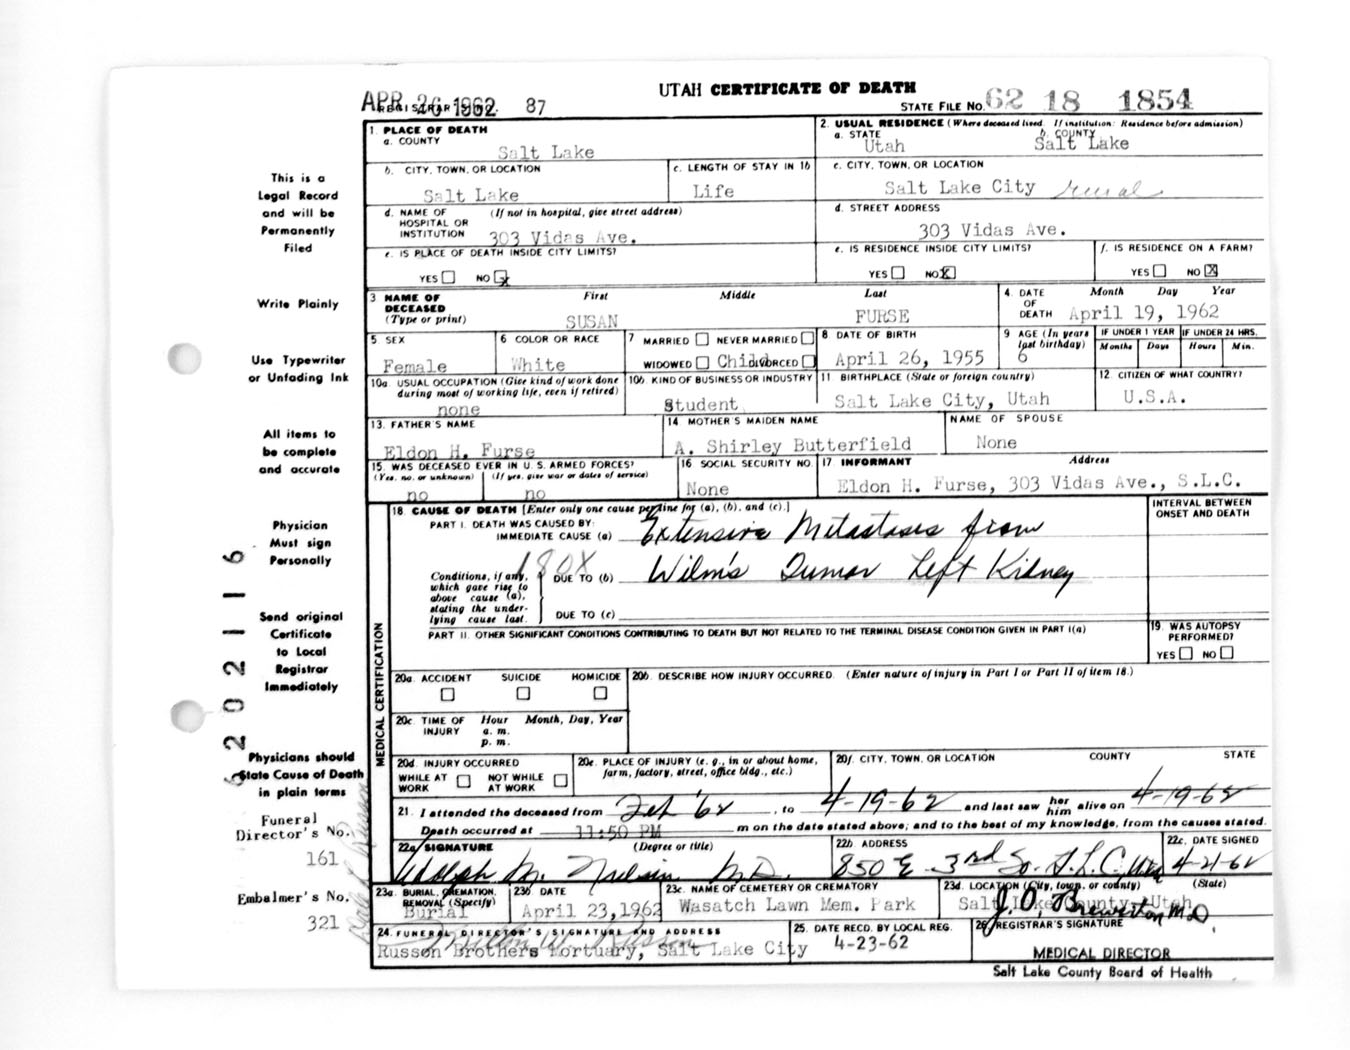 UTAH CERTIFICATE OF DEATH
APR 26 1962 87
REGISTRAR'S NO.
STATE FILE NO. 62 18 1854
This is a
Legal Record
and will be
Permanently
Filed
Write Plainly
Use Typewriter
or Unfading Ink
All items to
be complete
and accurate
Physician
Must sign
Personally
Send original
Certificate
to Local
Registrar
Immediately
Physicians should
State Cause of Death
in plain terms
Funeral
Director's No.
161
Embalmer's No.
321
6202116
1. PLACE OF DEATH
a. COUNTY
Salt Lake
2. USUAL RESIDENCE (Where deceased lived. If institution: Residence before admission)
a. STATE b. COUNTY
Utah Salt Lake
b. CITY, TOWN, OR LOCATION
Salt Lake
c. LENGTH OF STAY IN 1b
Life
c. CITY, TOWN, OR LOCATION
Salt Lake City rural
d. NAME OF (If not in hospital, give street address)
HOSPITAL OR
INSTITUTION 303 Vidas Ave.
d. STREET ADDRESS
303 Vidas Ave.
e. IS PLACE OF DEATH INSIDE CITY LIMITS?
YES NO x
e. IS RESIDENCE INSIDE CITY LIMITS?
YES NO X
f. IS RESIDENCE ON A FARM?
YES NO X
3 NAME OF First Middle Last
DECEASED
(Type or print) SUSAN FURSE
4. DATE Month Day Year
OF
DEATH April 19, 1962
5. SEX
Female
6 COLOR OR RACE
White
7 MARRIED NEVER MARRIED
WIDOWED Child DIVORCED
8 DATE OF BIRTH
April 26, 1955
9 AGE (In years
last birthday)
6
IF UNDER 1 YEAR IF UNDER 24 HRS.
Months Days Hours Min.
10a. USUAL OCCUPATION (Give kind of work done
during most of working life, even if retired)
none
10b. KIND OF BUSINESS OR INDUSTRY
Student
11. BIRTHPLACE (State or foreign country)
Salt Lake City, Utah
12. CITIZEN OF WHAT COUNTRY?
U.S.A.
13. FATHER'S NAME
Eldon H. Furse
14. MOTHER'S MAIDEN NAME
A. Shirley Butterfield
NAME OF SPOUSE
None
15. WAS DECEASED EVER IN U. S. ARMED FORCES?
(Yes, no, or unknown) (If yes, give war or dates of service)
no no
16 SOCIAL SECURITY NO.
None
17. INFORMANT Address
Eldon H. Furse, 303 Vidas Ave., S.L.C.
MEDICAL CERTIFICATION
18. CAUSE OF DEATH [Enter only one cause per line for (a), (b), and (c).]
INTERVAL BETWEEN
ONSET AND DEATH
PART I. DEATH WAS CAUSED BY:
IMMEDIATE CAUSE (a) Extensive Metastases from
180X
Conditions, if any, DUE TO (b) Wilm's Tumor Left Kidney
which gave rise to
above cause (a),
stating the under-
lying cause last. DUE TO (c)
PART II. OTHER SIGNIFICANT CONDITIONS CONTRIBUTING TO DEATH BUT NOT RELATED TO THE TERMINAL DISEASE CONDITION GIVEN IN PART I(a)
19. WAS AUTOPSY
PERFORMED?
YES NO
20a. ACCIDENT SUICIDE HOMICIDE
20b. DESCRIBE HOW INJURY OCCURRED. (Enter nature of injury in Part I or Part II of item 18.)
20c. TIME OF Hour Month, Day, Year
INJURY a. m.
p. m.
20d. INJURY OCCURRED
WHILE AT NOT WHILE
WORK AT WORK
20e. PLACE OF INJURY (e. g., in or about home,
farm, factory, street, office bldg., etc.)
20f. CITY, TOWN, OR LOCATION COUNTY STATE
21. I attended the deceased from Feb '62, to 4-19-62 and last saw her him alive on 4-19-62
Death occurred at 11:50 PM m on the date stated above; and to the best of my knowledge, from the causes stated.
22a. SIGNATURE (Degree or title)
Adolph M. Nielsen M.D.
22b. ADDRESS
850 E 3rd So. S.L.C. Utah
22c. DATE SIGNED
4-21-62
23a. BURIAL, CREMATION,
REMOVAL (Specify)
Burial
23b DATE
April 23, 1962
23c. NAME OF CEMETERY OR CREMATORY
Wasatch Lawn Mem. Park
23d. LOCATION (City, town, or county) (State)
Salt Lake County, Utah
24. FUNERAL DIRECTOR'S SIGNATURE AND ADDRESS
Russon Brothers Mortuary, Salt Lake City
25. DATE RECD. BY LOCAL REG.
4-23-62
26 REGISTRAR'S SIGNATURE
J. O. Brewerton M.D.
MEDICAL DIRECTOR
Salt Lake County Board of Health